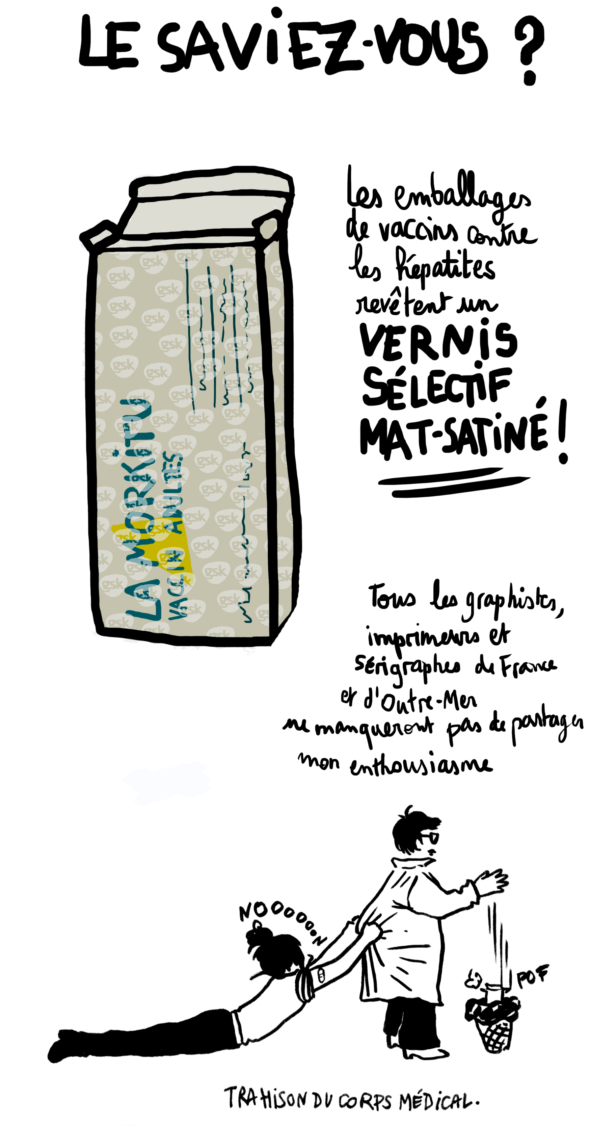 LE SAVIEZ-VOUS ?
Les emballages
de vaccins contre
les hépatites
revêtent un
VERNIS
SÉLECTIF
MAT-SATINÉ !
gsk
LA MORKITU
VACCIN ADULTES
Tous les graphistes,
imprimeurs et
sérigraphes de France
et d'Outre-Mer
ne manqueront pas de partager
mon enthousiasme
NOOOOOON
POF
TRAHISON DU CORPS MÉDICAL.